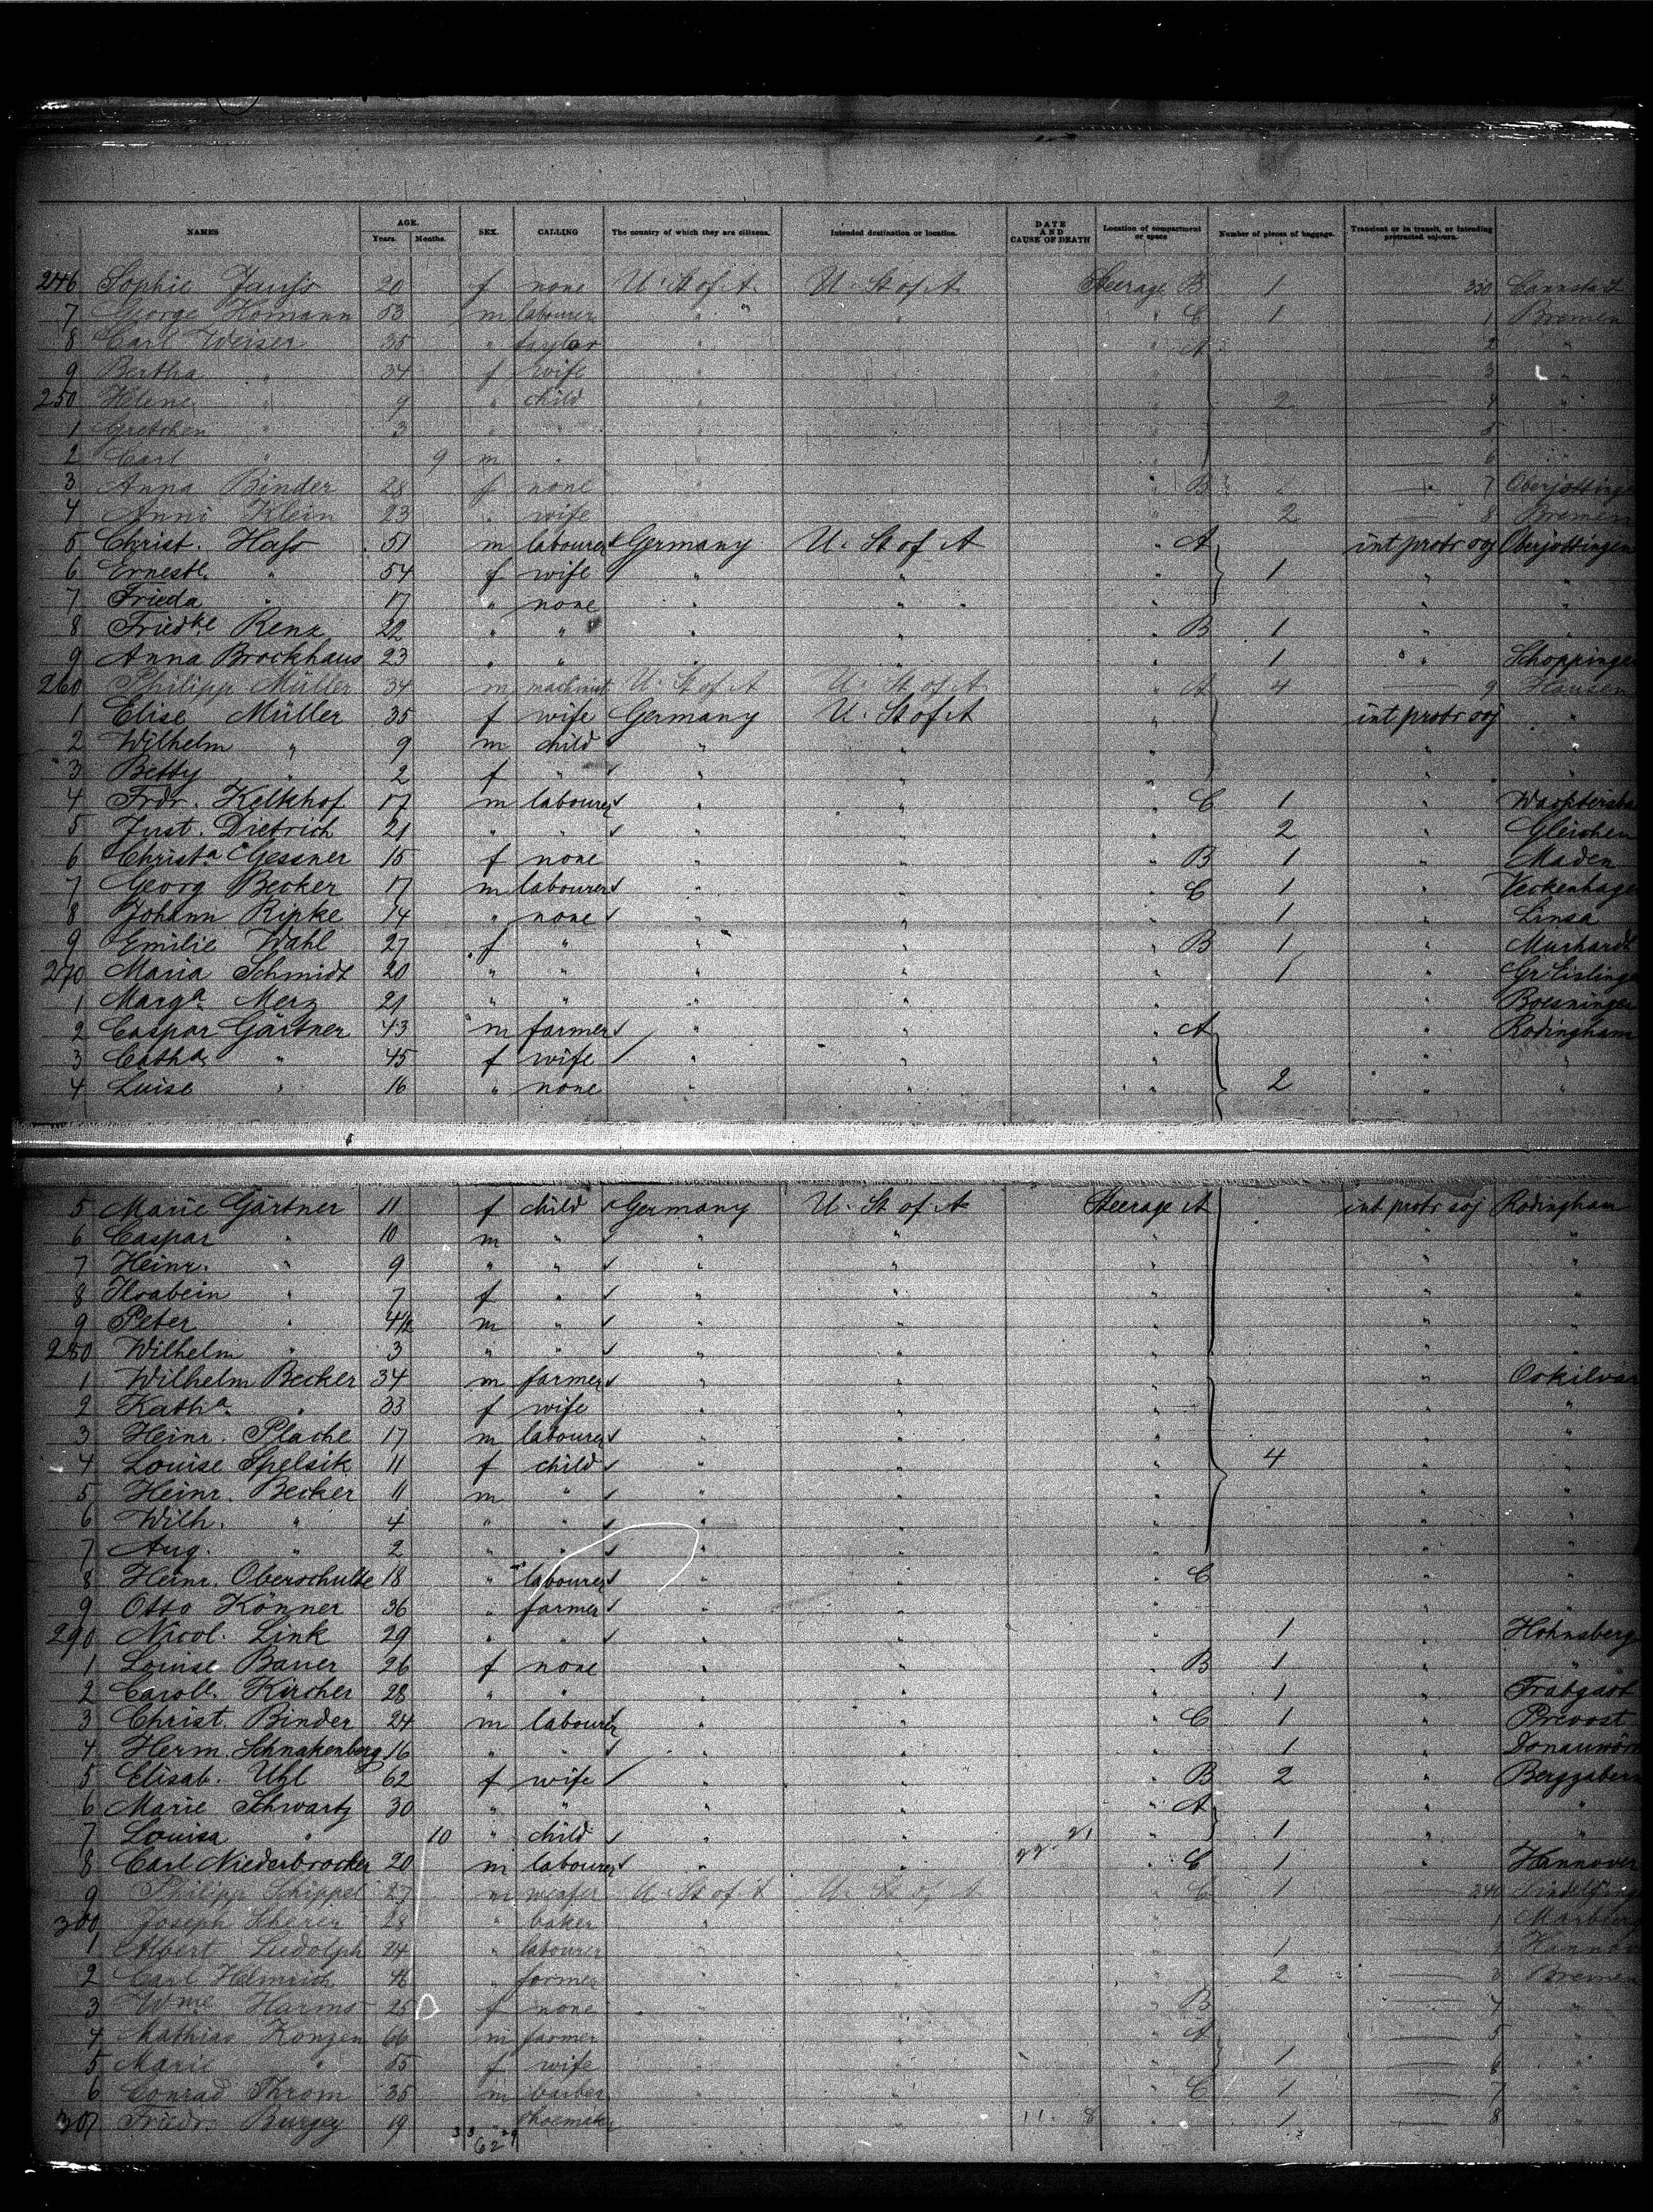 NAMES AGE. Years. Months. SEX. CALLING The country of which they are citizens. Intended destination or location. DATE AND CAUSE OF DEATH Location of compartment or space Number of pieces of baggage. Transient or in transit, or intending protracted sojourn.
246 Sophie 20 f none U. St of A. U. St of A Steerage B 1 330 Cannstatt
7 George Homann 53 m labourer " " " " C 1 — 1 Bremen
8 Carl Weiser 35 " taylor " " A — 2 "
9 Bertha " 34 f wife " " — 3 "
250 Helene " 9 " child " " 2 — 4 "
1 Gretchen " 3 " " " " — 5 "
2 Carl " 9 m " " — 6 "
3 Anna Binder 28 f none " " B — 7
4 Anni Klein 23 " wife " " 2 — 8 Bremen
5 Christ. Hass 51 m labourer Germany U. St of A " A int protr soj Oberjottingen
6 Ernestl. " 54 f wife " " " 1 " "
7 Frieda " 17 " none " " " " "
8 Friedke Renz 22 " " " " " B 1 " "
9 Anna Brockhaus 23 " " " " " 1 "
260 Philipp Müller 34 m machinist U. St of A U. St of A " A 4 — 9 Hausen
1 Elise Müller 35 f wife Germany U. St of A " int protr soj "
2 Wilhelm " 9 m child " " " " "
3 Betty " 2 f " " " " " "
4 Frdr. Kelkhof 17 m labourer " " " C 1 "
5 Just. Dietrich 21 " " " " " 2 " Gleichen
6 Christa Gessner 15 f none " " " B 1 " Maden
7 Georg Becker 17 m labourer " " " C 1 " Veckenhage
8 Johann Ripke 14 " none " " " 1 " Linsa
9 Emilie Wahl 27 f " " " " B 1 " Murhardt
270 Maria Schmidt 20 " " " " " 1 " Gr Eislinge
1 Marga Merz 21 " " " " " Boesninger
2 Caspar Gärtner 43 m farmer " " " A " Rodingham
3 Catha " 45 f wife " " " " "
4 Luise " 16 " none " " " 2 " "
5 Marie Gärtner 11 f child Germany U. St of A Steerage A int protr soj Rodingham
6 Caspar " 10 m " " " " " "
7 Heinr. " 9 " " " " " " "
8 " 7 f " " " " " "
9 Peter " 4½ m " " " " " "
280 Wilhelm " 3 " " " " " " "
1 Wilhelm Becker 34 m farmer " " " "
2 Katha " 33 f wife " " " " "
3 Heinr. Plache 17 m labourer " " " " "
4 Louise Spelsik 11 f child " " " 4 " "
5 Heinr. Becker 11 m " " " " " "
6 Wilh. " 4 " " " " " " "
7 Aug. " 2 " " " " " " "
8 Heinr. Oberschulte 18 " labourer " " " C " "
9 Otto Könner 36 " farmer " " " " "
290 Nicol. Link 29 " " " " " 1 " Hohnsberg
1 Louise Bauer 26 f none " " " B 1 " "
2 Carole. Kircher 28 " " " " " 1 "
3 Christ. Binder 24 m labourer " " " C 1 " Prevost
4 Herm. Schnakenberg 16 " " " " " 1 " Donauwör
5 Elisab. Uhl 62 f wife " " " B 2 " Bergzabern
6 Marie Schwartz 30 " " " " " A " "
7 Louisa " 10 " child " " 21 " 1 " "
8 Carl Niederbrocker 20 m labourer " " 22 " C 1 " Hannover
9 Philipp Schippel 27 m U. St of A U. St of A " C 1 — 340
300 Joseph Scherer 28 " baker " " " — 1 Marburg
1 Albert Ludolph 24 " labourer " " " 1 — 2 Hannov
2 Carl Helmrich 48 " farmer " " " 2 — 3 Bremen
3 Wme Harms 25 f none " " B — 4 "
4 Mathias Konzen 66 m farmer " " " A — 5 "
5 Marie " 55 f wife " " " 1 — 6 "
6 Conrad Throm 35 m barber " " " C 1 — 7 "
307 Friedr. Burgey 19 " shoemaker " " 11. 8 " 1 — 8 "
33 62 29